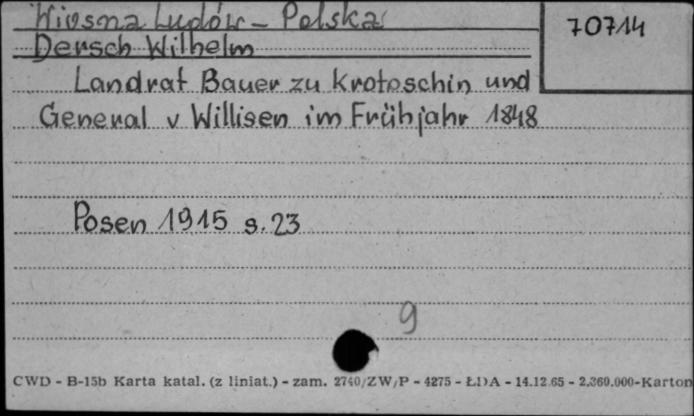 Wiosna Ludów - Polska
70714
Dersch Wilhelm
Landrat Bauer zu Krotoschin und
General v Willisen im Frühjahr 1848
Posen 1915 s. 23
9
CWD - B-15b Karta katal. (z liniat.) - zam. 2740/ZW/P - 4275 - ŁDA - 14.12.65 - 2.360.000-Karton